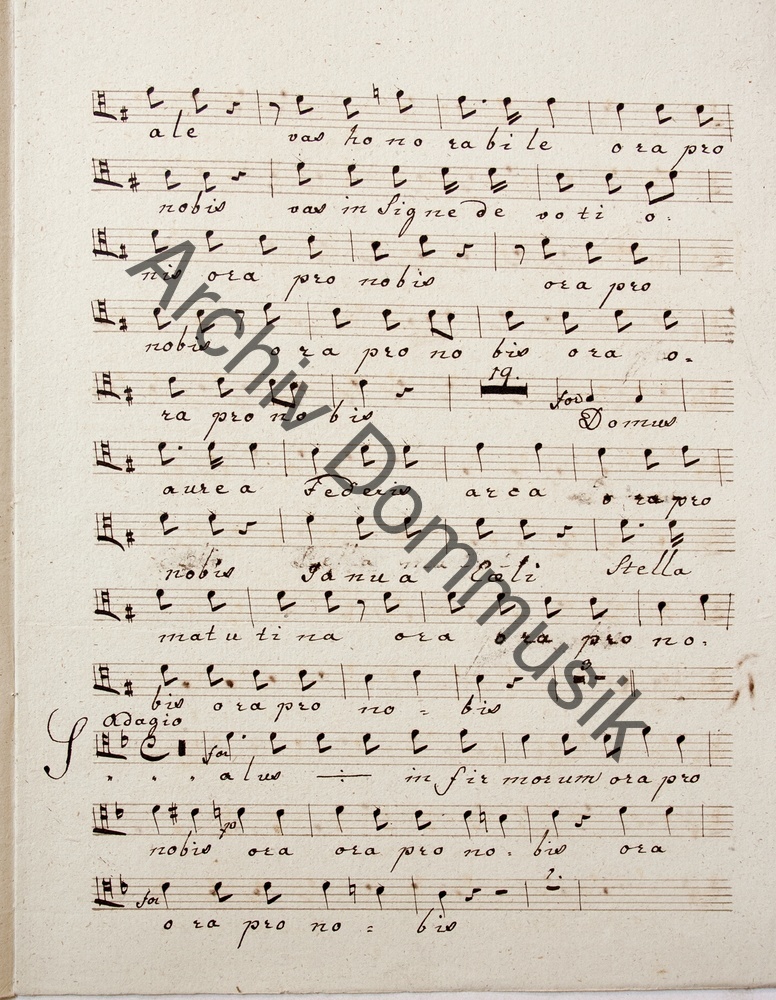 ale vas ho no ra bi le o ra pro
nobis vas in Signe de vo ti o-
nis ora pro nobis ora pro
nobis o ra pro no bis ora o-
19.
for
ra pro no bis Domus
aurea Federis arca o ra pro
nobis Janua Cœli Stella
matutina ora o ra pro no-
3
bis o ra pro no - bis
Adagio
for
S alus in fir morum ora pro
p
nobis ora ora pro no - bis ora
for
1.
o ra pro no = bis
Archiv Dommusik